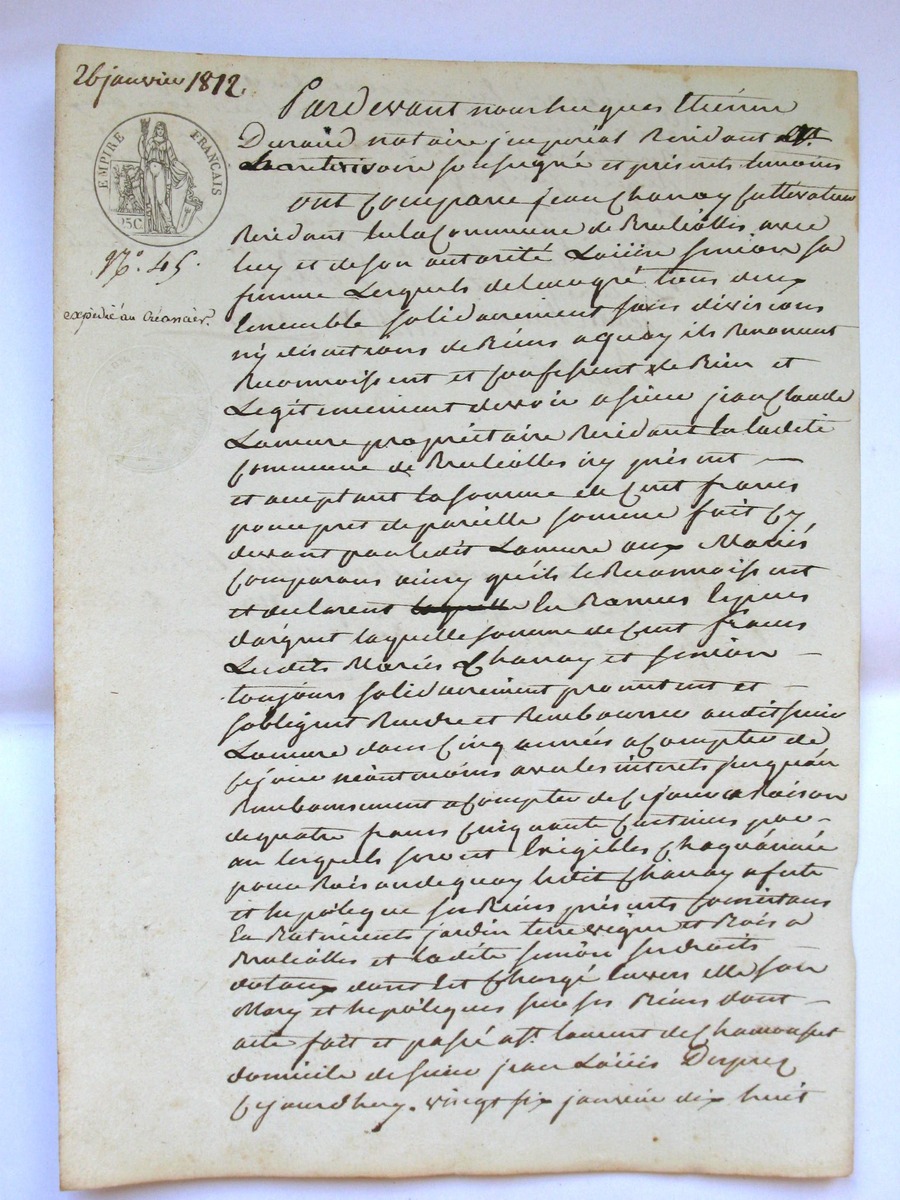 26 janvier 1812.
EMPIRE FRANÇAIS
25C
N.° 45.
expédié au Créancier.
Pardevant nous hugues Etienne
Durand notaire jmperial Residant
Chantrivoire soussigné et presents temoins
ont Comparu jean Chanay Cultivateur
Residant En la Commune de Bruliolles avec
luy et de son autorité Loüise simion sa
femme Lesquels de leur gré tous deux
Ensemble solidairement sans divisions
ny discutions de Biens aquoy ils Renoncent
Reconnoissent et Confessent de Bien et
Legitimement devoir a sieur jean Claude
Lamure propriétaire Residant En la dite
Commune de Brulioles icy present —
et aceptant la somme de Cent francs
pour pret de pareille somme fait Cy
devant par ledit Lamure aux Mariés
Comparans ainsy qu'ils le Reconnoissent
et declarent laquelle En Bonnes Espices
d'argent laquelle somme de Cent francs
Lesdits Mariés Chanay et simion —
toujours solidairement promettent et —
soblignt Rendre et Rembourcer audit sieur
Lamure dans Cinq années a Compter de
Ce jour néantmoins avec les interets jusquán
Remboursement a Compter de Ce jour a Raison
de quatre francs Cinquante Centimes par —
an lesquels seront Exigibles Chaque année
pour Raison de quoy ledit Chanay afecte
et hepôteque ses Biens présents Consistans
En Batiments jardin terre vigne et Bois a
Brulioles et ladite simion ses droits
dotaux dont Est Chargé Envers elle son
Mary et hepôteques sur ses Biens dont —
acte fait et passé a St. laurent de Chamousset
domicile de sieur jean Loüis Dupré
Cejourdhuy vingt six janvier dix huit